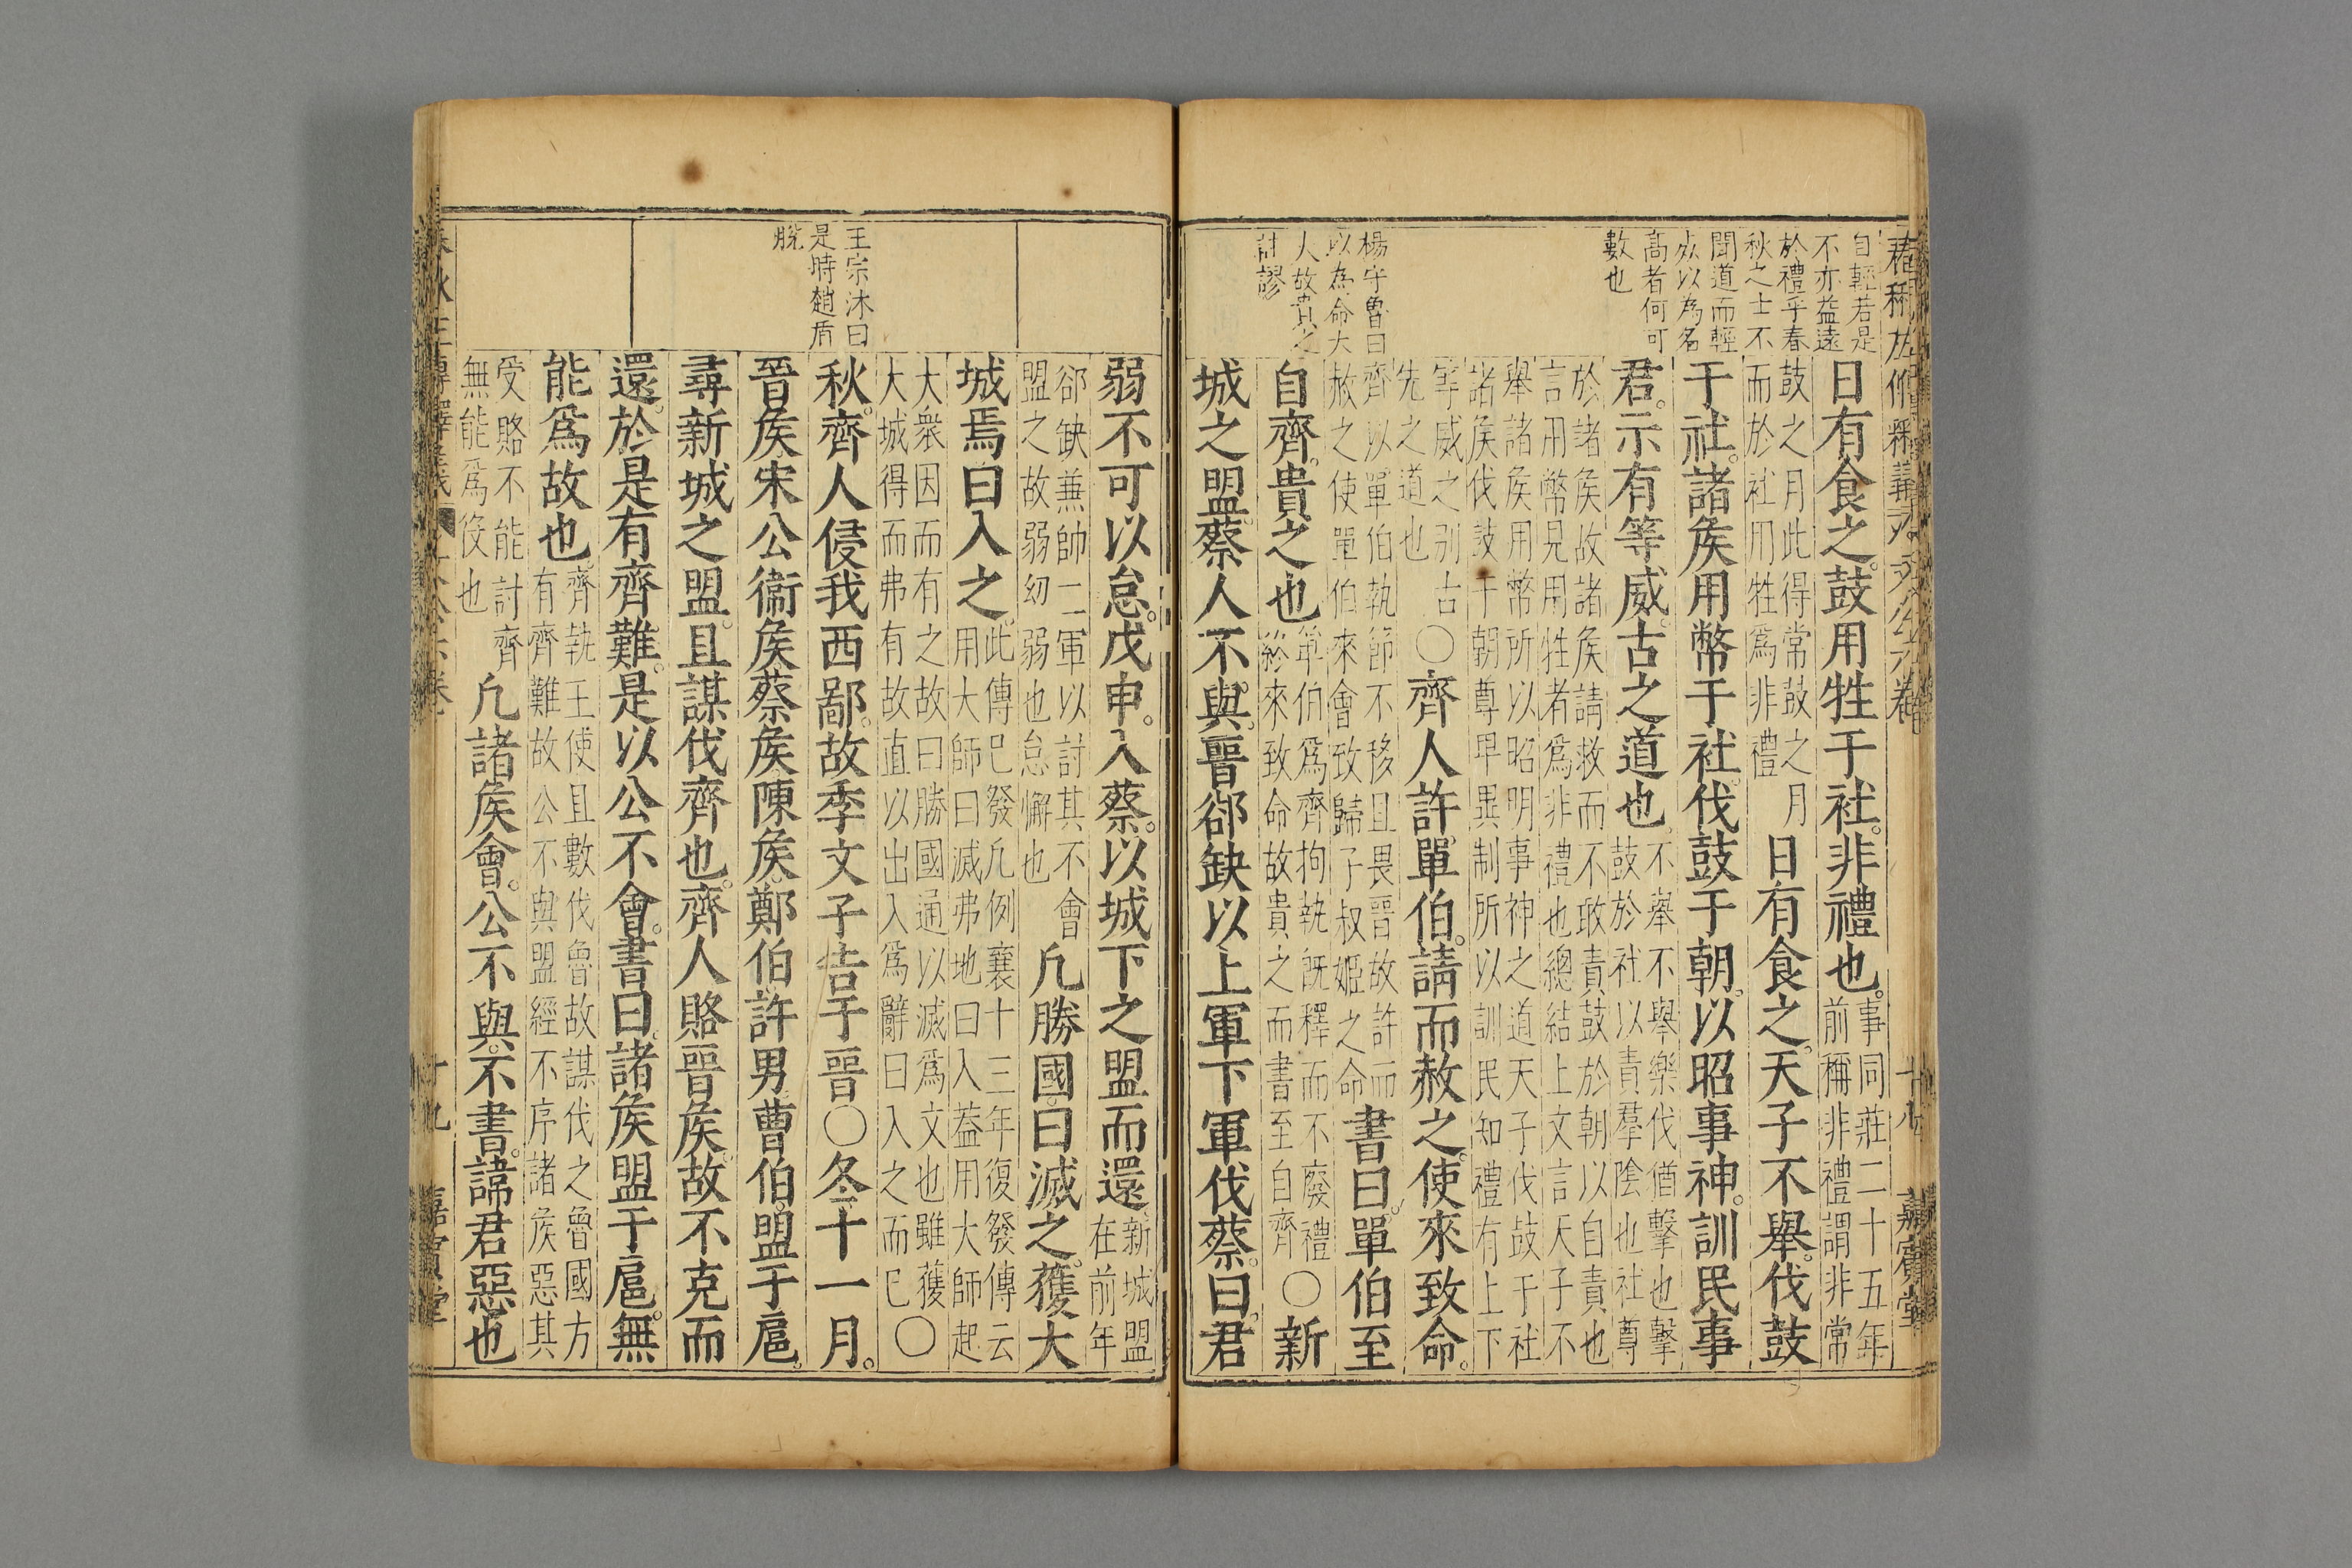 自輕若是
不亦益遠
於禮乎春
秋之士不
聞道而輕
死以為名
高者何可
數也
楊守魯曰
以為命大
人故貴之
計謬
日有食之。鼓用牲于社。非禮也。事同莊二十五年
前稱非禮謂非常
鼓之月此得常鼓之月
而於社用牲爲非禮
日有食之。天子不舉。伐鼓
于社。諸矦用幣于社。伐鼓于朝。以昭事神。訓民事
君。示有等威。古之道也。不舉不舉樂伐猶擊也擊
鼓於社以責羣陰也社尊
於諸矦故諸矦請救而不敢責鼓於朝以自責也
言用幣見用牲者爲非禮也總結上文言天子不
舉諸矦用幣所以昭明事神之道天子伐鼓于社
諸矦伐鼓于朝尊卑異制所以訓民知禮有上下
等威之别古
先之道也
〇齊人許單伯。請而赦之。使來致命。
齊以單伯執節不移且畏晉故許而
赦之使單伯來會致歸子叔姬之命
書曰。單伯至
自齊。貴之也
單伯爲齊拘執旣釋而不廢禮
終來致命故貴之而書至自齊
〇新
城之盟。蔡人不與。晉郤缺以上軍下軍伐蔡。曰。君
王宗沐曰
是時趙盾
脫
弱不可以怠。戊申。入蔡。以城下之盟而還。新城盟
在前年
郤缺兼帥二軍以討其不會
盟之故弱幼弱也怠懈也
凡勝國。曰滅之。獲大
城焉。曰入之。此傳巳發凡例襄十三年復發傳云
用大師曰滅弗地曰入葢用大師起
大衆因而有之故曰勝國通以滅爲文也雖獲
大城得而弗有故直以出入爲辭曰入之而巳〇
秋。齊人侵我西鄙。故季文子告于晉〇冬。十一月。
晉矦。宋公。衞矦。蔡矦。陳矦。鄭伯。許男。曹伯。盟于扈。
尋新城之盟。且謀伐齊也。齊人賂晉矦。故不克而
還。於是有齊難。是以公不會。書曰。諸矦盟于扈。無
能爲故也。齊執王使且數伐魯故謀伐之魯國方
有齊難故公不與盟經不序諸矦惡其
受賂不能討齊
無能爲役也
凡諸矦會。公不與。不書。諱君惡也
十九
嘉賓堂